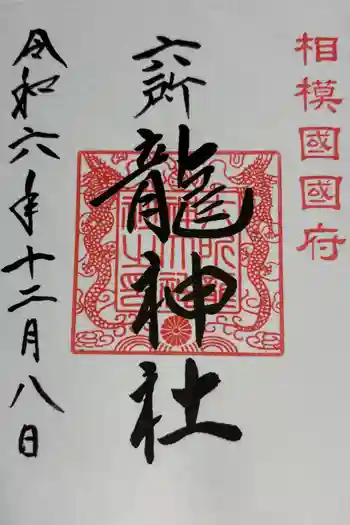 相模國國府
六所
龍神社
令和六年十二月八日